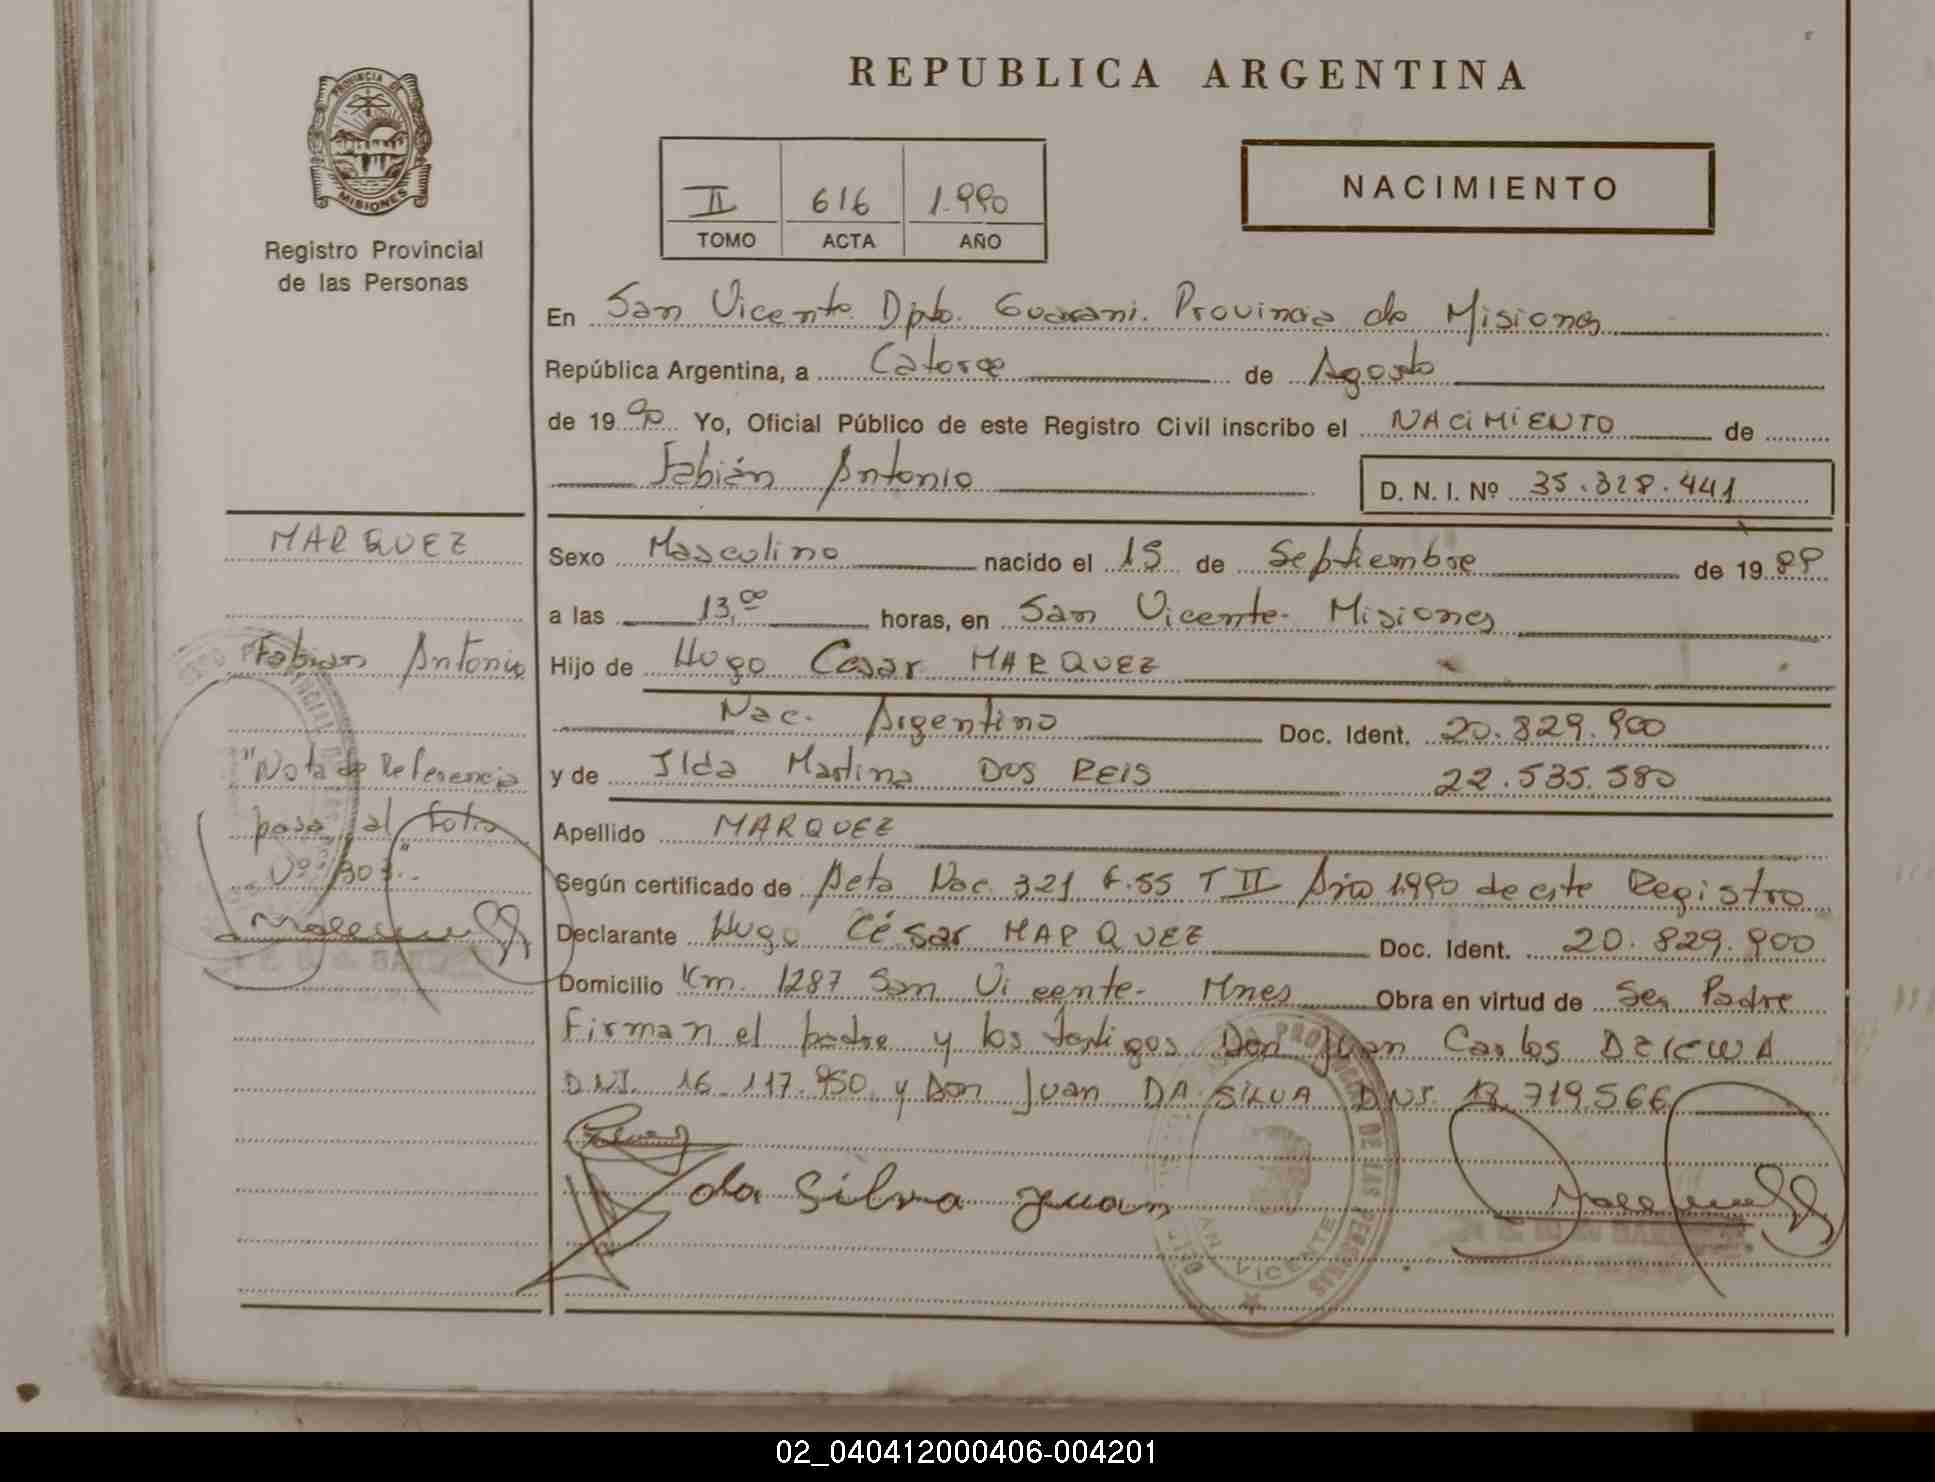 REPUBLICA ARGENTINA
PROVINCIA DE
MISIONES
Registro Provincial
de las Personas
II 616 1.990
TOMO ACTA AÑO
NACIMIENTO
En San Vicente Dpto. Guarani. Provincia de Misiones
República Argentina, a Catorce de Agosto
de 19 90 Yo, Oficial Público de este Registro Civil inscribo el NACIMIENTO de
Fabián Antonio
D. N. I. Nº 35.328.441
MARQUEZ
Fabian Antonio
"Nota de Referencia
pasa al folio
Nº 303"
Sexo Masculino nacido el 15 de Septiembre de 19 89
a las 13,00 horas, en San Vicente - Misiones
Hijo de Hugo Cesar MARQUEZ
Nac. Argentino Doc. Ident. 20.829.900
y de Ilda Martina DOS REIS 22.535.580
Apellido MARQUEZ
Según certificado de Acta Nac. 321 F.55 T II Año 1.990 de este Registro
Declarante Hugo César MARQUEZ Doc. Ident. 20.829.900
Domicilio Km. 1287 San Vicente - Mnes Obra en virtud de Ser Padre
Firman el padre y los testigos Don Juan Carlos
DNI. 16.117.950 y Don Juan DA SILVA DNI. 18.719.566
da Silva Juan
SAN VICENTE
02_040412000406-004201